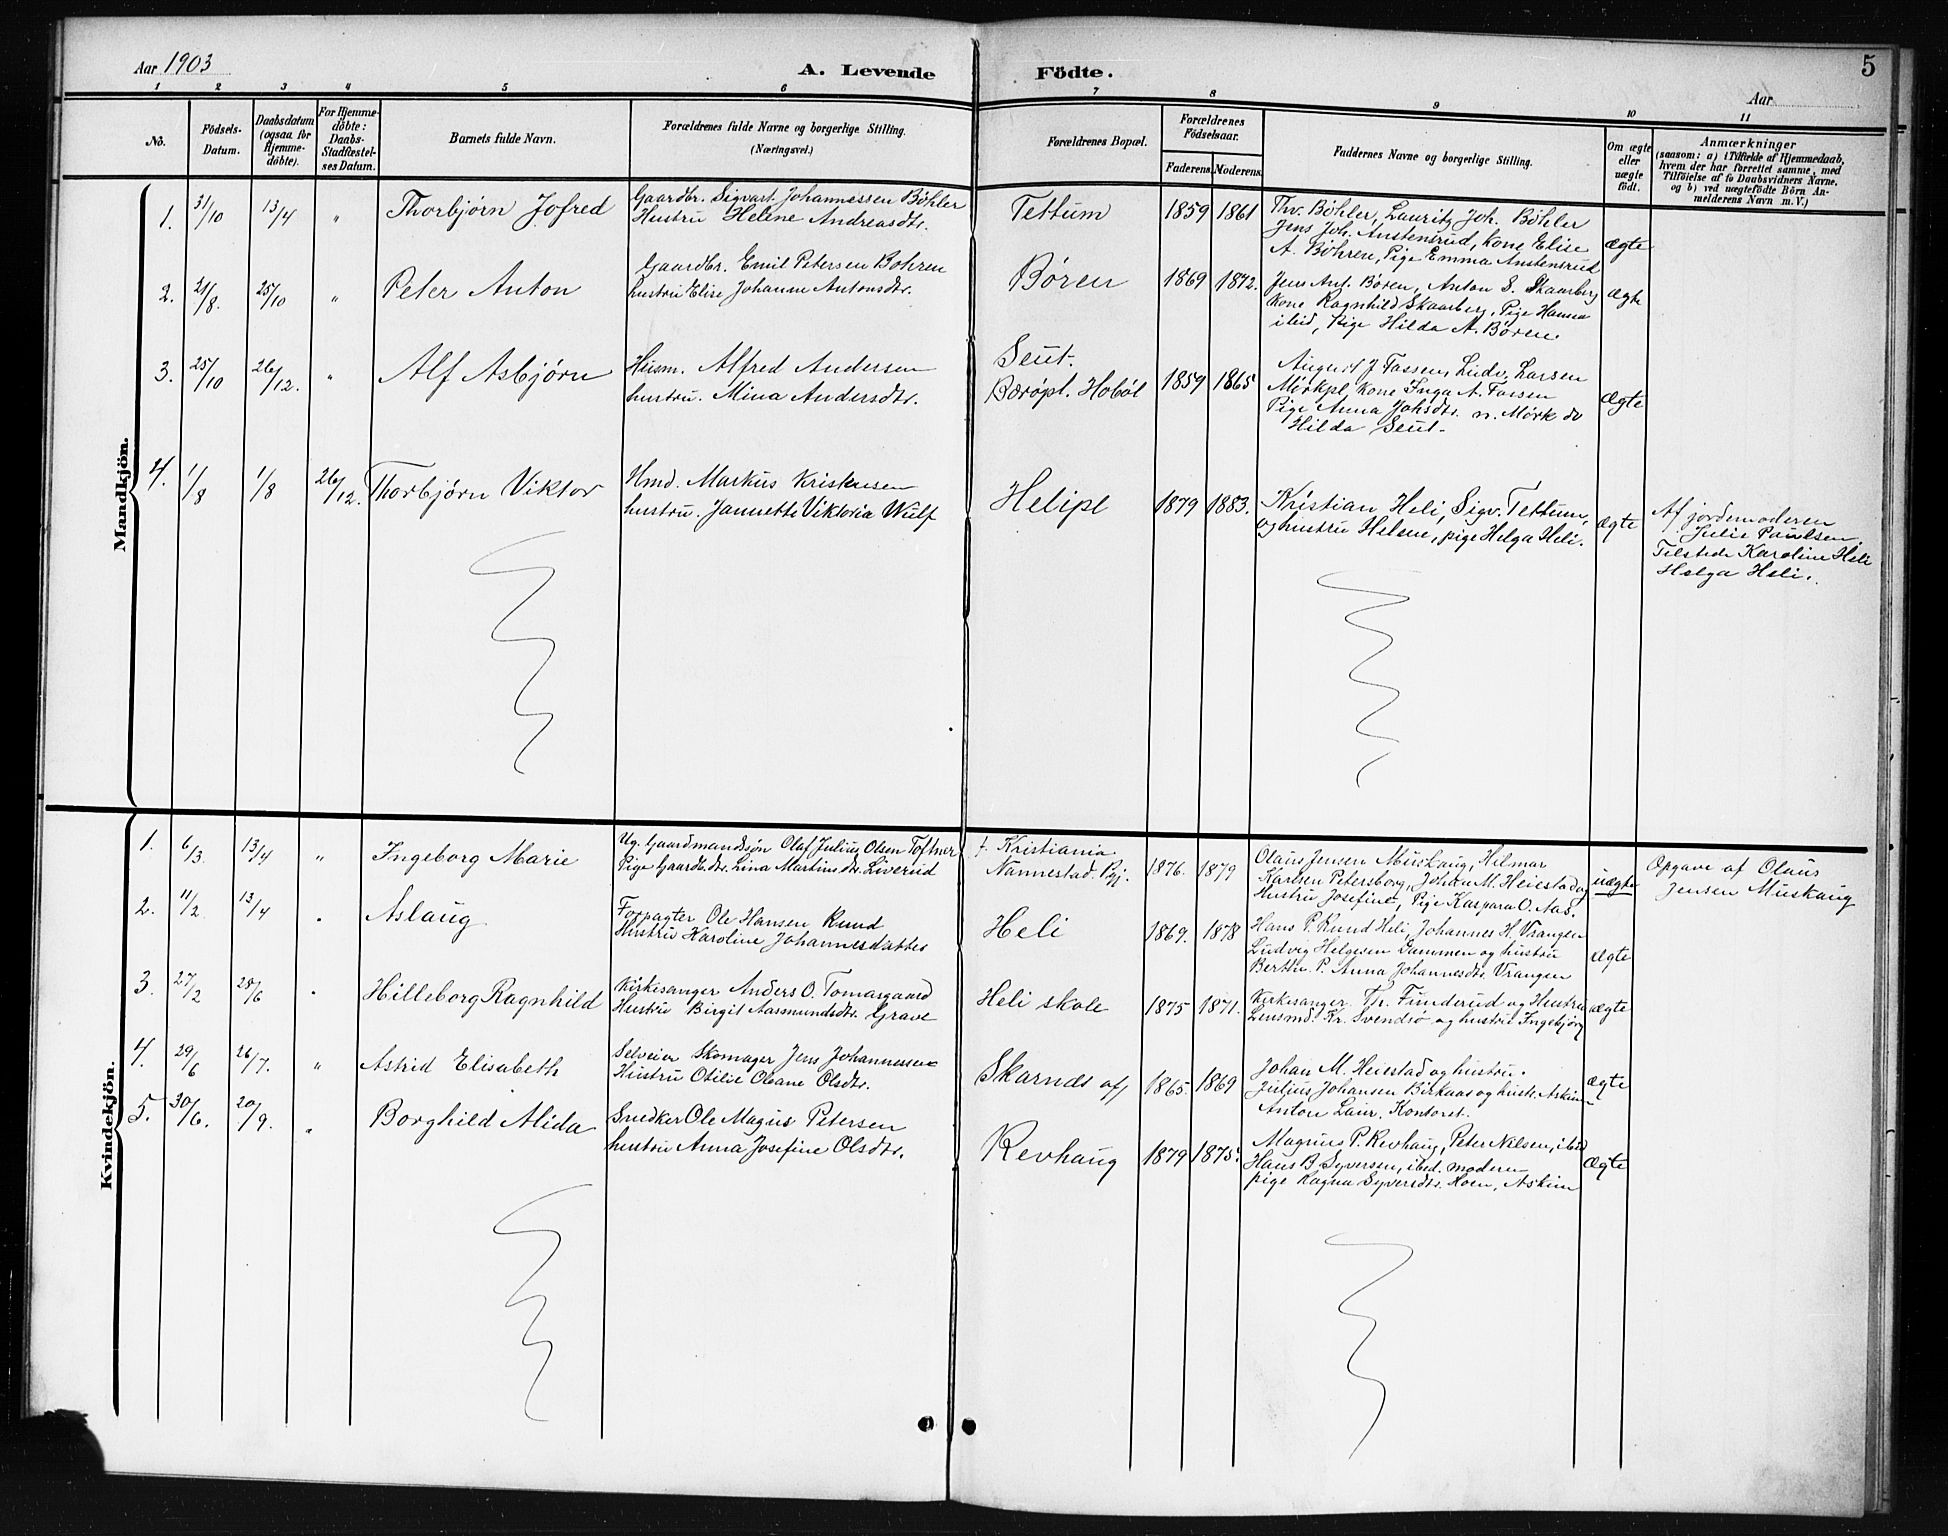 Aar 1903
A. Levende Födte.
5
Aar
1 2 3 4 5 6 7 8 9 10 11
No.
Födsels-
Datum.
Daabsdatum
(ogsaa for
Hjemme-
döbte).
For Hjemme-
döbte:
Daabs-
Stadfæstel-
ses Datum.
Barnets fulde Navn.
Forældrenes fulde Navne og borgerlige Stilling.
(Næringsvei.)
Forældrenes Bopæl.
Forældrenes
Födselsaar.
Faderens. Moderens.
Faddernes Navne og borgerlige Stilling.
Om ægte
eller
uægte
födt.
Anmærkninger
(saasom: a) i Tilfælde af Hjemmedaab,
hvem der har forrettet samme, med
Tilföielse af to Daabsvidners Navne,
og b) ved uægtefödte Börn An-
melderens Navn m. V.)
Mandkjön.
1. 31/10 13/4 " Thorbjørn Jofred
Gaardbr. Sigvart Johannessen Böhler
Hustru Helene Andreasdtr.
Tettum 1859 1861
Thv. Böhler, Lauritz Joh. Böhler
Jens Joh. Austensrud, Kone Elise
A. Böhren, Pige Emma Austensrud
ægte
2. 21/8. 25/10 " Peter Anton
Gaardbr. Emil Petersen Bohren
hustru Elise Johanne Antonsdtr.
Børen 1869 1872.
Jens Ant. Børen, Anton S. Skaarberg
Kone Ragnhild Skaarberg, Pige Hanna
ibid, pige Hilda A. Børen.
ægte
3. 25/10 26/12. " Alf Asbjørn
Husm. Alfred Andersen
hustru. Mina Andersdtr.
Seut-
Bærøpl. Hobøl 1859 1865
August J Fossen, Ludv. Larsen
Mørkpl. Kone Inga A. Fossen
Pige Anna Johsdtr. n. Mørk do
Hilda Seut-
ægte
4. 1/8 1/8 26/12. Thorbjørn Viktor
Hmd. Markus Kristensen
hustru. Jannette Viktoria Wulf
Helipl 1879 1883.
Kristian Heli, Sigv. Tettum,
og hustru Helene, pige Helga Heli.
ægte
Af jordemoderen
Julie Paulsen
Tilstede Karoline Heli
Helga Heli.
Kvindekjön.
1. 6/3. 13/4 " Ingeborg Marie
Ug. Gaardmandssøn Olaf Julius Olsen Toftner
Pige Gaardb.dtr. Lina Martinsdtr. Liverud
f. Kristiania
Nannestad. Pgj. 1876. 1879
Olaus Jensen Muskaug, Hilmar
Karlsen Petersborg, Johan M. Heiestad og
Hustru Josefine, Pige Kaspara O. Aas.
uægte
Opgave af Olaus
Jensen Muskaug
2. 11/2 13/4 " Aslaug
Forpagter Ole Hansen Rund
Hustru Karoline Johannesdatter
Heli 1869. 1878
Hans P. Rund Heli, Johannes H. Vrangen
Ludvig Helgesen Dammen og hustru
Berthe P. Anna Johannesdtr. Vrangen
ægte
3. 27/2 28/6 " Hilleborg Ragnhild
Kirkesanger Anders O. Tomasgaard
Hustru Birgit Aasmundsdtr. Grave
Heli skole 1875 1871.
Kirkesanger Th. Funderud og Hustru
Lensmd. Kr. Svendsø og hustru Ingebjørg
ægte
4. 29/6 26/7. " Astrid Elisabeth
Selveier Skomager Jens Johannessen
Hustru Otilie Oleane Olsdtr.
Skarnds af/ 1865. 1869
Johan M. Heiestad og hustru.
Julius Johansen Birkaas og hustr. Askim
Anton Laur. Kontoret.
ægte
5. 30/6. 20/9. " Borghild Alida
Snedker Ole Magnus Petersen
hustru Anna Josefine Olsdtr.
Revhaug 1879 1875.
Magnus P. Revhaug, Peter Nilsen, ibid
Hans B. Syversen, ibid. moderen
pige Ragna Syversdtr. Moen, Askim
ægte